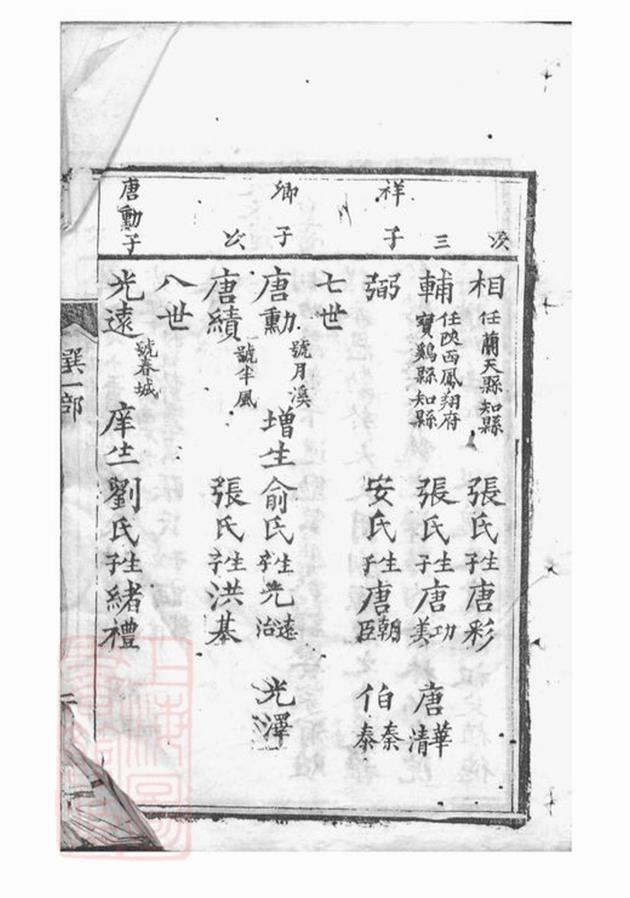 次
相 任蘭天縣知縣 張氏生子唐彩
三
輔 任陜西鳳翔府寶鷄縣知縣 張氏生子唐功美 唐華清
祥子
弼 安氏生子唐朝臣 伯秦泰
七世
卿子
唐勳 號月溪 增生 俞氏生子光遠治 光澤
次
唐績 號半風 張氏生子洪基
八世
唐勳子
光遠 號春城 庠生 劉氏生子緒禮
選一部